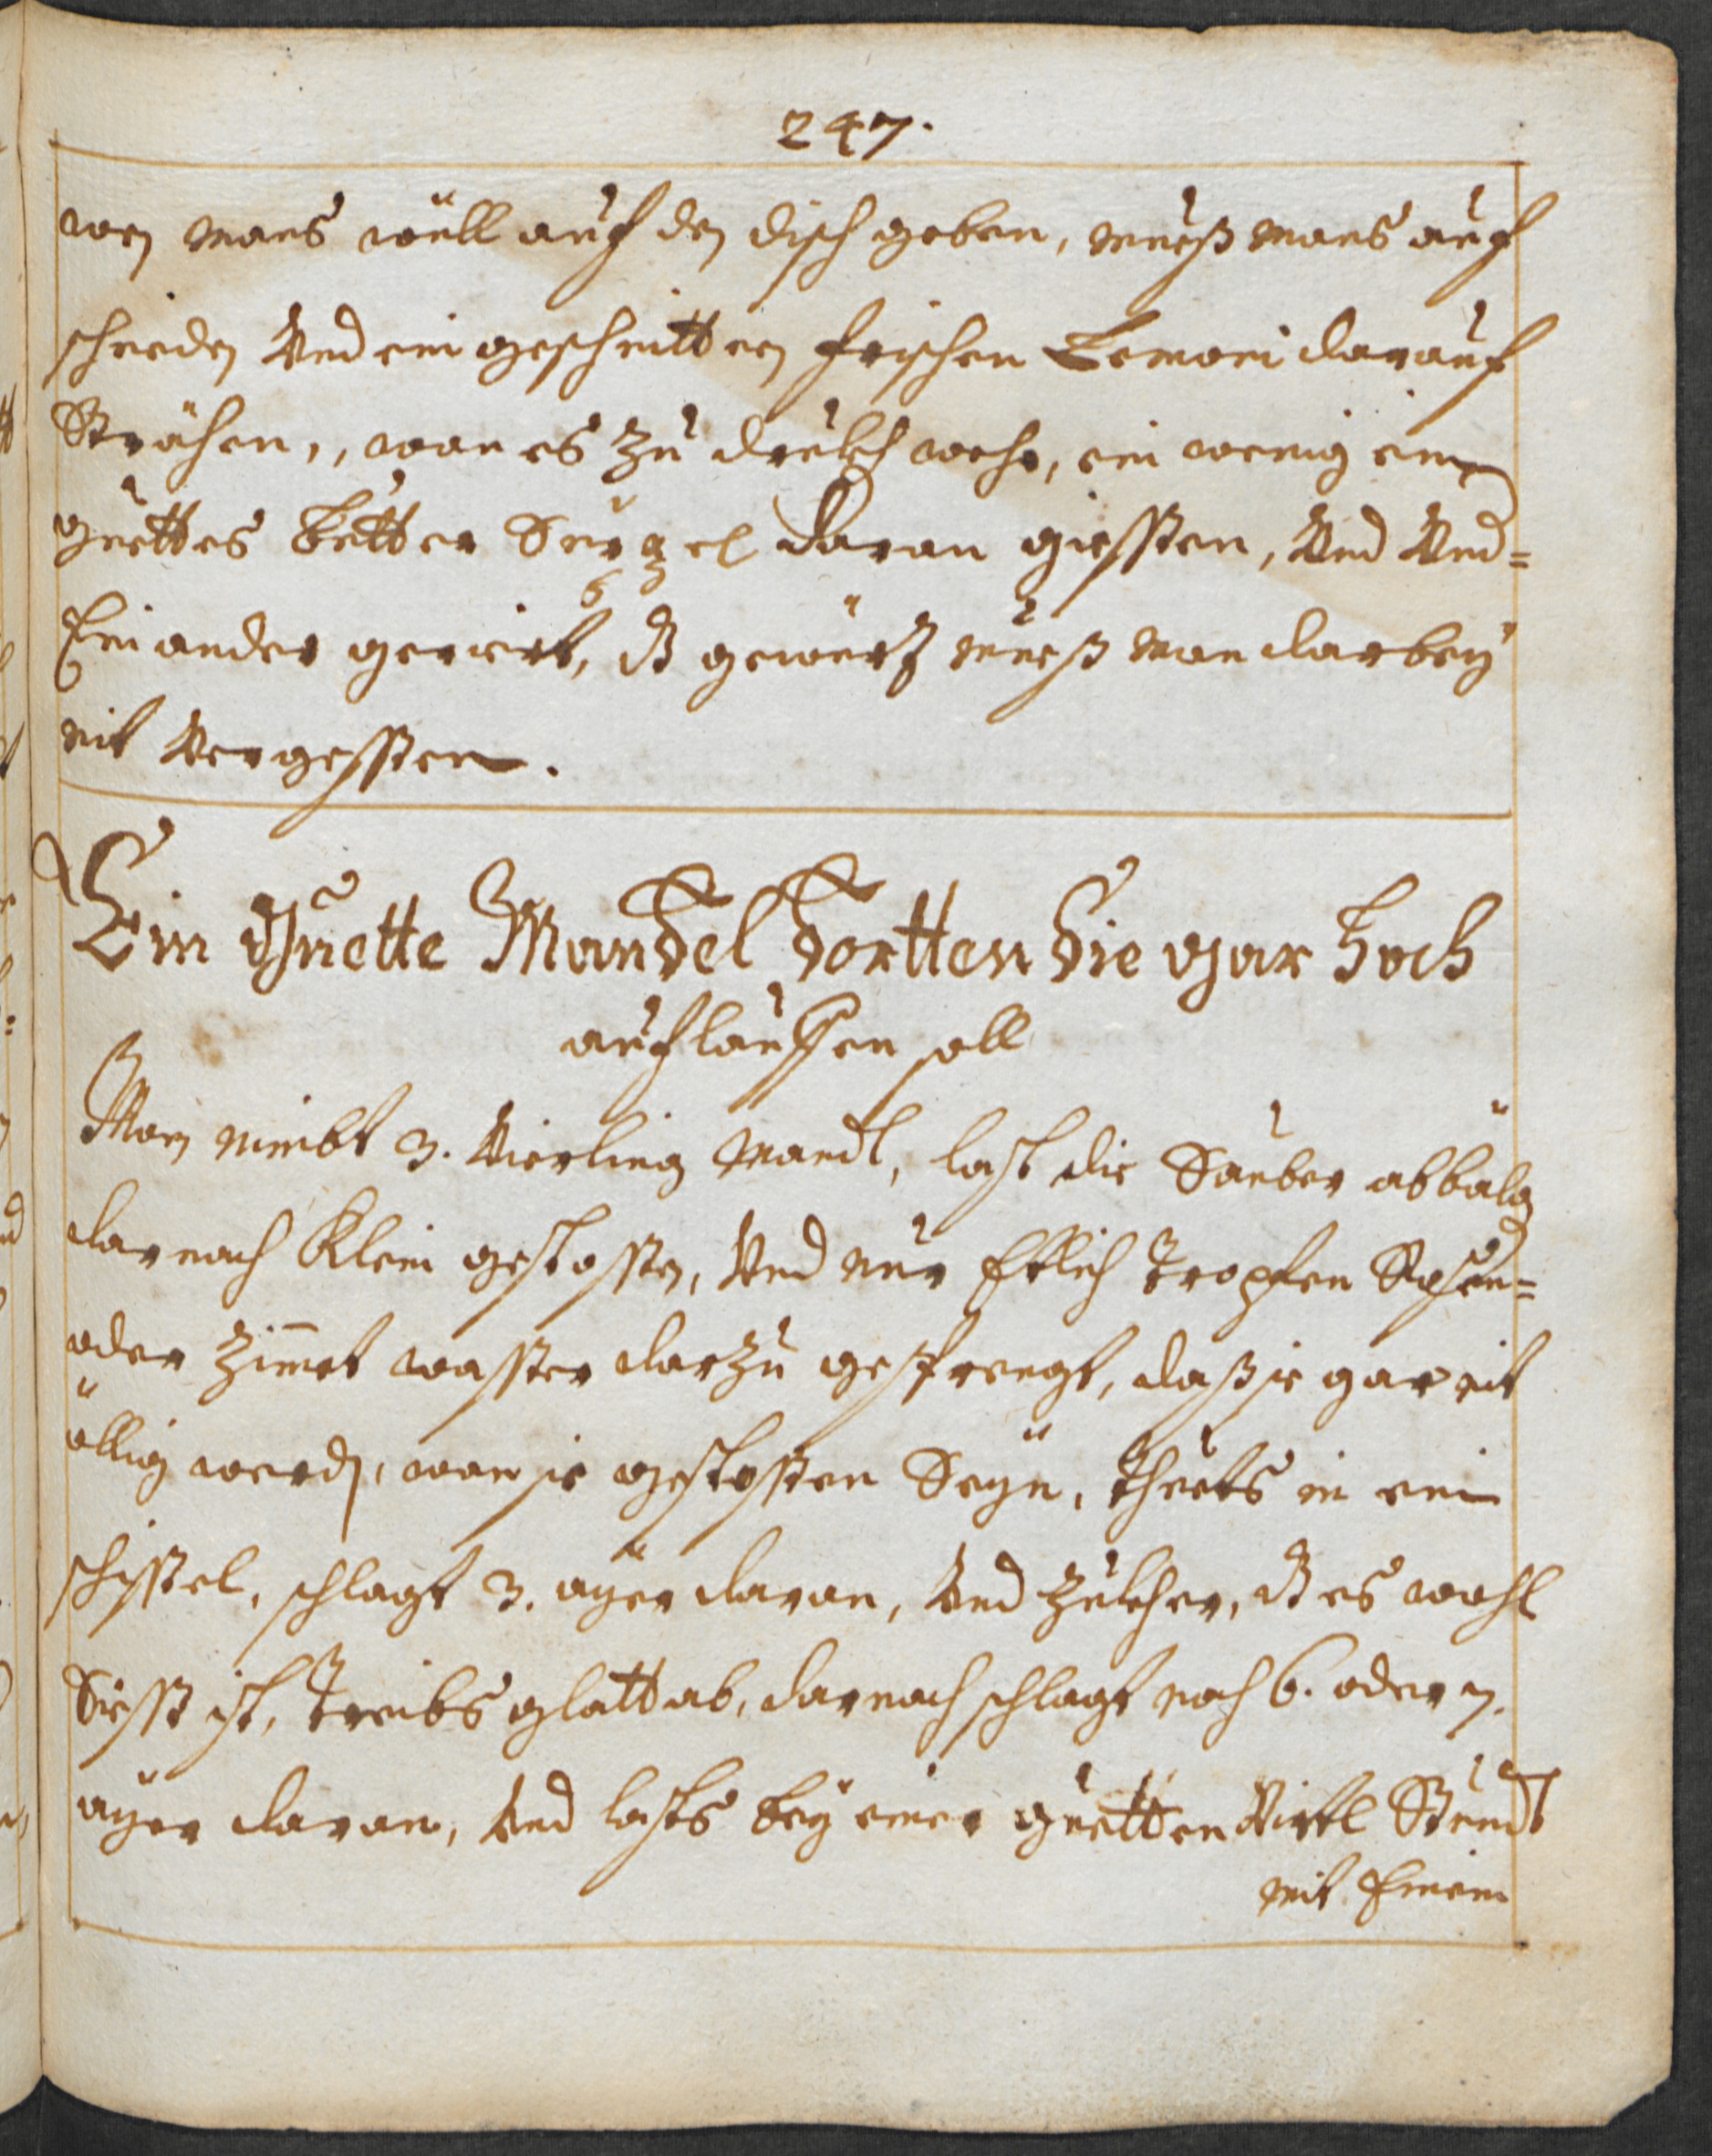 247.
wen mans wüll auf den disch geben, mueß mans auf
schneiden Vnd ein geschnitten frischen Lemoni darauf
Strähen, wan es zu druckh wehr, ein wenig ein
guettes fettes daran giessen, Vnd Vnd=
Einander geriert, dz gewürz mueß man darbeÿ
nit Vergessen.
Ein Guette Mandel Dortten Die gar Hoch
auflauffen soll
Man nimbt 3. Vierling Mandl, last die Sauber abbälgen
darnach Klein gestossen, Vnd nur Etlich Tropfen Rosen=
oder Zimet wasser darzu gesprengt, daß sie gar nit
öllig werden, wan sie gestossen Seÿn, thuets in ein
schissel, schlagt 3. aÿer daran, Vnd zukher, dz es wohl
Siess ist, treibs glatt ab, darnach schlagt noch 6. oder 7.
aÿer daran, Vnd lasts beÿ einer guetten Virtl Stundt
mit Einem